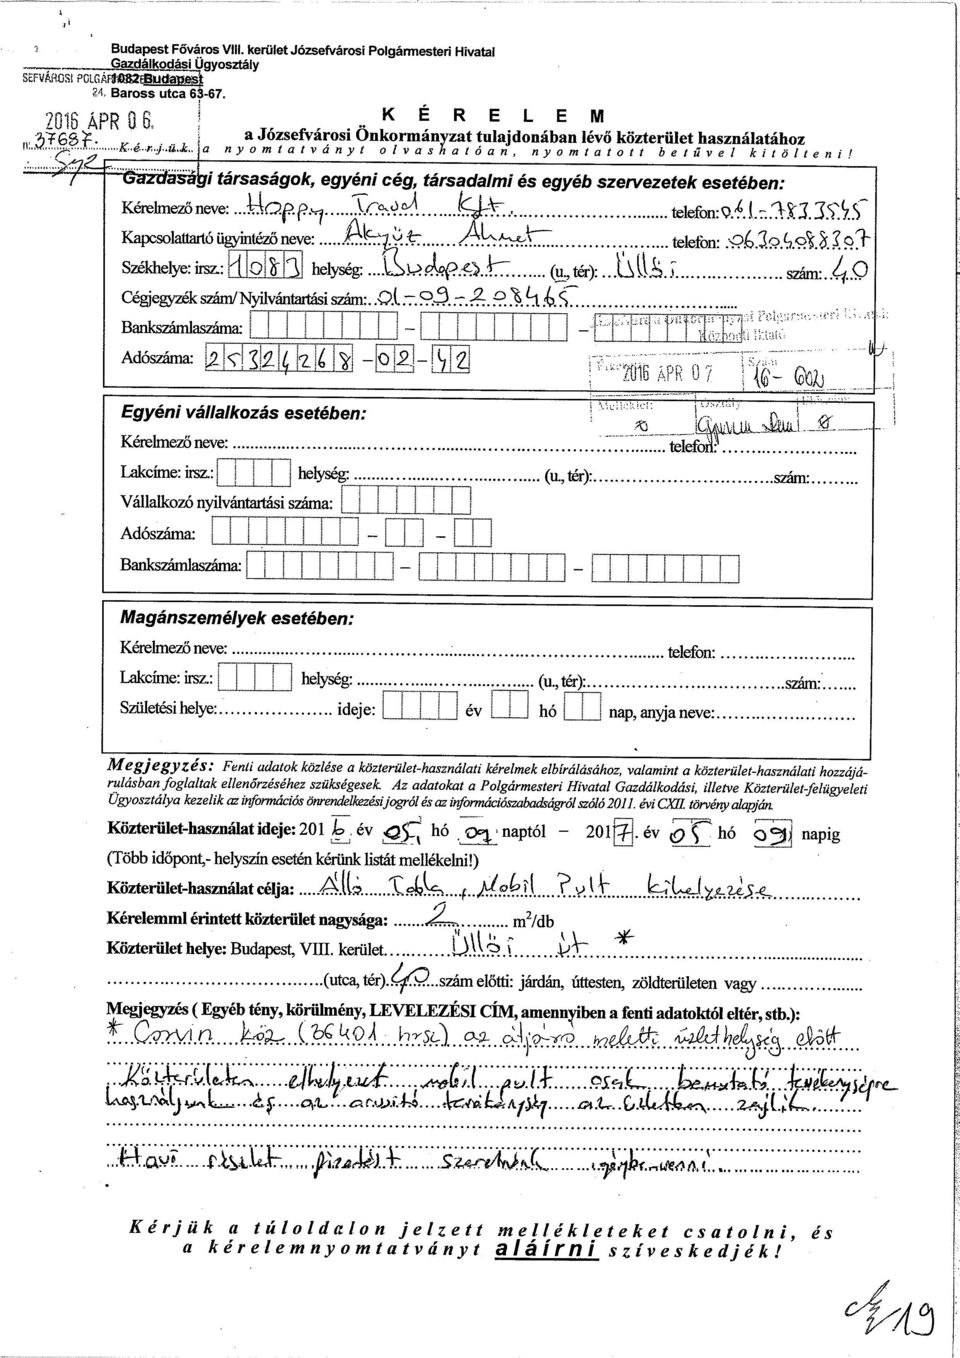 Budapest Főváros VIII. kerület Józsefvárosi Polgármesteri Hivatal
Gazdálkodási Ügyosztály
1082 Budapest
Baross utca 63-67.
2016 ÁPR 06.
37687
K É R E L E M
a Józsefvárosi Önkormányzat tulajdonában lévő közterület használatához
Kérjük a nyomtatványt olvashatóan, nyomtatott betűvel kitölteni!
Gazdasági társaságok, egyéni cég, társadalmi és egyéb szervezetek esetében:
Kérelmező neve: Hoppy Travel Kft. telefon: 061-7833545
Kapcsolattartó ügyintéző neve: Akyüz Ahmet telefon:
Székhelye: irsz.: 1083 helység: Budapest (u., tér): Üllői szám: 40
Cégjegyzék szám/ Nyilvántartási szám: 01-09-208465
Bankszámlaszáma: – –
Adószáma: 25324268-02-42
2016 ÁPR 07 16-602
Egyéni vállalkozás esetében:
Kérelmező neve: telefon:
Lakcíme: irsz.: helység: (u., tér): szám:
Vállalkozó nyilvántartási száma:
Adószáma: – –
Bankszámlaszáma: – –
Magánszemélyek esetében:
Kérelmező neve: telefon:
Lakcíme: irsz.: helység: (u., tér): szám:
Születési helye: ideje: év hó nap, anyja neve:
Megjegyzés: Fenti adatok közlése a közterület-használati kérelmek elbírálásához, valamint a közterület-használati hozzájá-
rulásban foglaltak ellenőrzéséhez szükségesek. Az adatokat a Polgármesteri Hivatal Gazdálkodási, illetve Közterület-felügyeleti
Ügyosztálya kezelik az információs önrendelkezési jogról és az információszabadságról szóló 2011. évi CXII. törvény alapján.
Közterület-használat ideje: 2016. év 05 hó 09 naptól – 2017. év 05 hó 09 napig
(Több időpont,- helyszín esetén kérünk listát mellékelni!)
Közterület-használat célja: Álló Tabla, Mobil Pult kihelyezése
Kérelemml érintett közterület nagysága: 2 m²/db
Közterület helye: Budapest, VIII. kerület Üllői út *
(utca, tér). 40 szám előtti: járdán, úttesten, zöldterületen vagy
Megjegyzés ( Egyéb tény, körülmény, LEVELEZÉSI CÍM, amennyiben a fenti adatoktól eltér, stb.):
* Corvin köz (36401 hrsz) az átjáró melletti üzlethelység előtt
Közterületen elhelyezett mobil pult csak bemutató tevékenységre
használjunk és az árusító tevékenység az üzletben zajlik.
Havi részlet fizetést szeretnénk igénybe venni.
Kérjük a túloldalon jelzett mellékleteket csatolni, és
a kérelemnyomtatványt aláírni szíveskedjék!
19